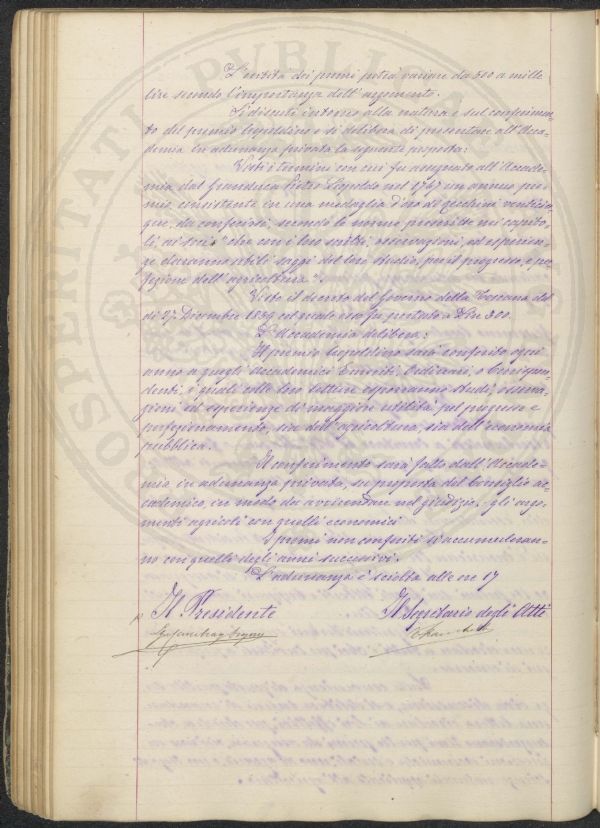 L'entità dei premi potrà variare da 500 a mille
lire secondo l'importanza dell'argomento.
Si discute intorno alla natura e sul conferimen-
to del premio leopoldino e si delibera di presentare all'Acca-
demia in adunanza privata la seguente proposta:
Visti i termini con cui fu assegnato all'Accade-
mia dal Granduca Pietro Leopoldo nel 1767 un annuo pre-
mio consistente in una medaglia d'oro di zecchini venticin-
que, da conferirsi, secondo le norme prescritte nei capito-
li, ai soci "che con i loro scritti, osservazioni, ed esperien-
ze daranno utili saggi del loro studio, per il progresso, e per-
fezione dell'agricoltura".
Visto il decreto del Governo della Toscana del
dì 27 Dicembre 1859 col quale esso fu portato a £ne 300.
L'Accademia delibera:
Il premio leopoldino sarà conferito ogni
anno a quegli Accademici Emeriti, Ordinari, o Corrispon-
denti, i quali colle loro letture esporranno studi, osserva-
zioni ed esperienze di maggiore utilità pel progresso e
perfezionamento, sia dell'agricoltura, sia dell'economia
pubblica.
Il conferimento sarà fatto dall'Accade-
mia in adunanza privata, su proposta del Consiglio ac-
cademico, in modo da avvicendare nel giudizio, gli argo-
menti agricoli con quelli economici
I premi non conferiti si accumuleran-
no con quelli degli anni successivi.
L'adunanza è sciolta alle ore 17
Il Presidente Il Segretario degli Atti
PROSPERITATI PUBLICAE